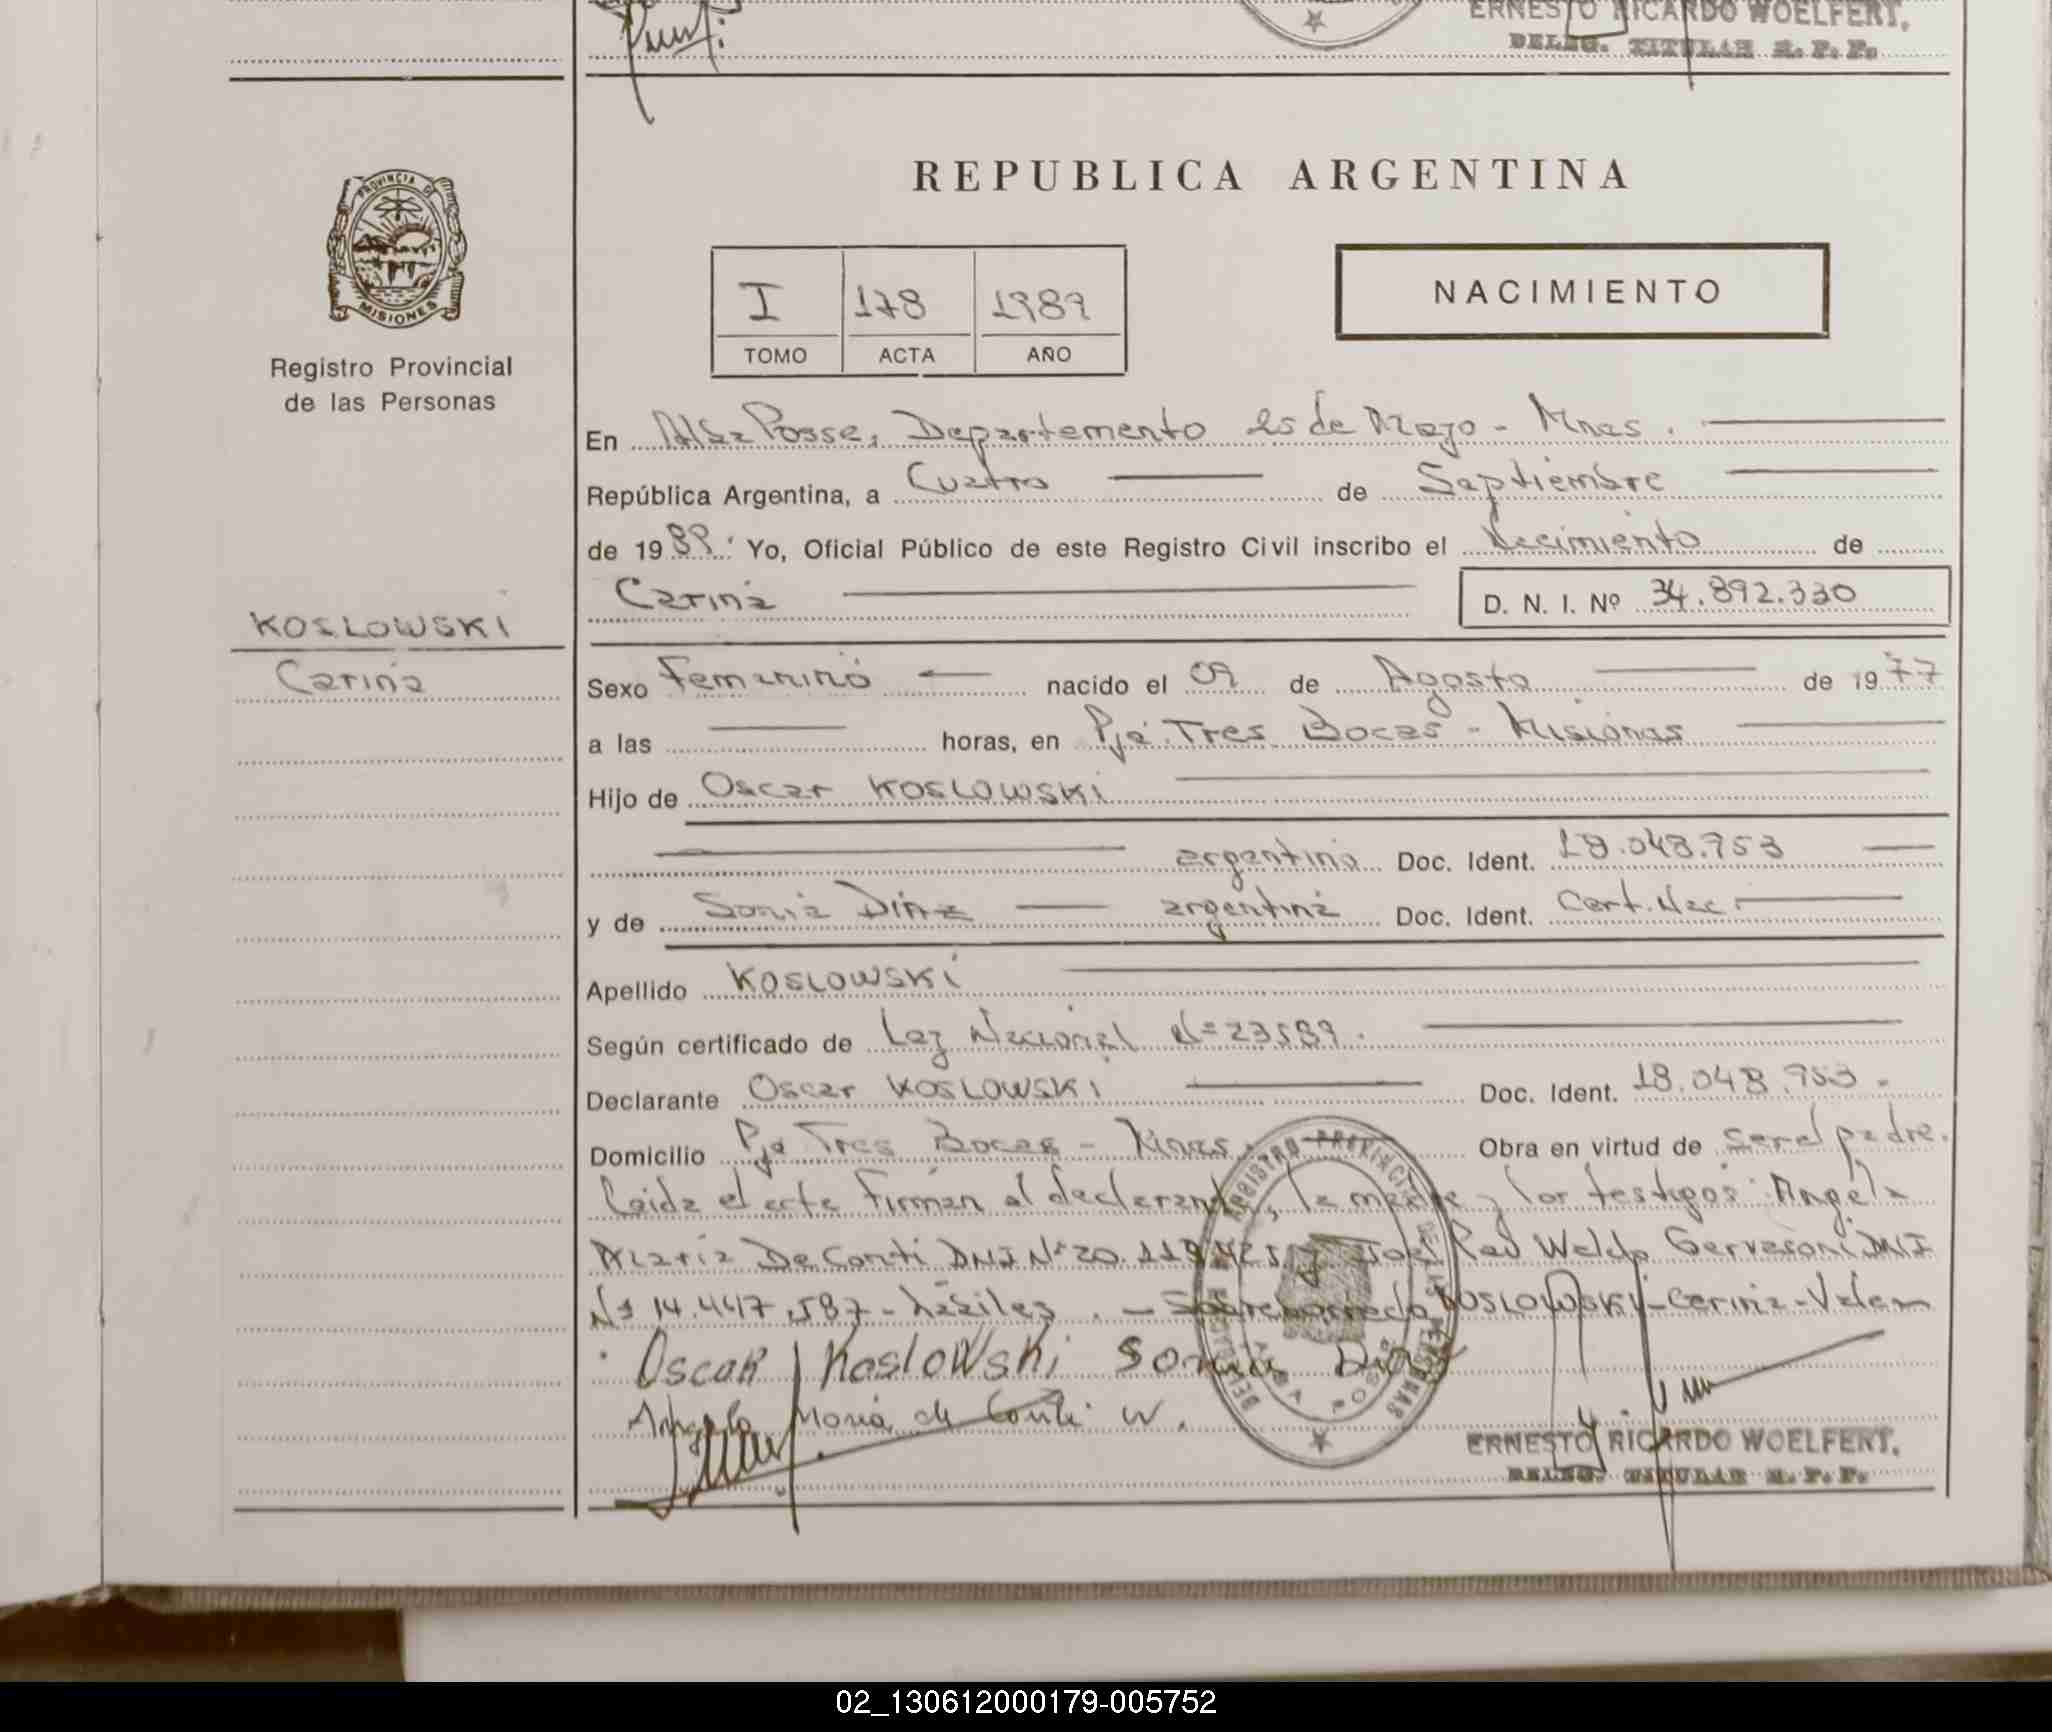 ERNESTO RICARDO WOELFERT.
DELEG. TITULAR R. P. P.
PROVINCIA D
MISIONES
Registro Provincial
de las Personas
REPUBLICA ARGENTINA
I 178 1989
TOMO ACTA AÑO
NACIMIENTO
En Alba Posse, Departamento 25 de Mayo - Mnes.
República Argentina, a Cuatro de Septiembre
de 1989. Yo, Oficial Público de este Registro Civil inscribo el Nacimiento de
Carina D. N. I. Nº 34.892.330
KOSLOWSKI
Carina
Sexo Femenino nacido el 09 de Agosto de 1977
a las horas, en Pje Tres Bocas - Misiones
Hijo de Oscar KOSLOWSKI
argentino Doc. Ident. 18.048.953
y de Sonia Dina argentina Doc. Ident. Cert. Nac.
Apellido KOSLOWSKI
Según certificado de Ley Nacional Nº 23589.
Declarante Oscar KOSLOWSKI Doc. Ident. 18.048.953.
Domicilio Pje Tres Bocas - Mnes. Obra en virtud de ser el padre.
Leida el acta Firman el declarante, la madre y los testigos: Angela
Maria De Conti DNI Nº 20.119.425 y Gervasoni DNI
Nº 14.447.587 - hábiles. - Sobreborrado KOSLOWSKI - Carina - Valen
Oscar Koslowski Sonia
Angela Maria de Conti W.
REGISTRO PROVINCIAL DE LAS PERSONAS
ALBA POSSE
ERNESTO RICARDO WOELFERT.
DELEG. TITULAR R. P. P.
02_130612000179-005752